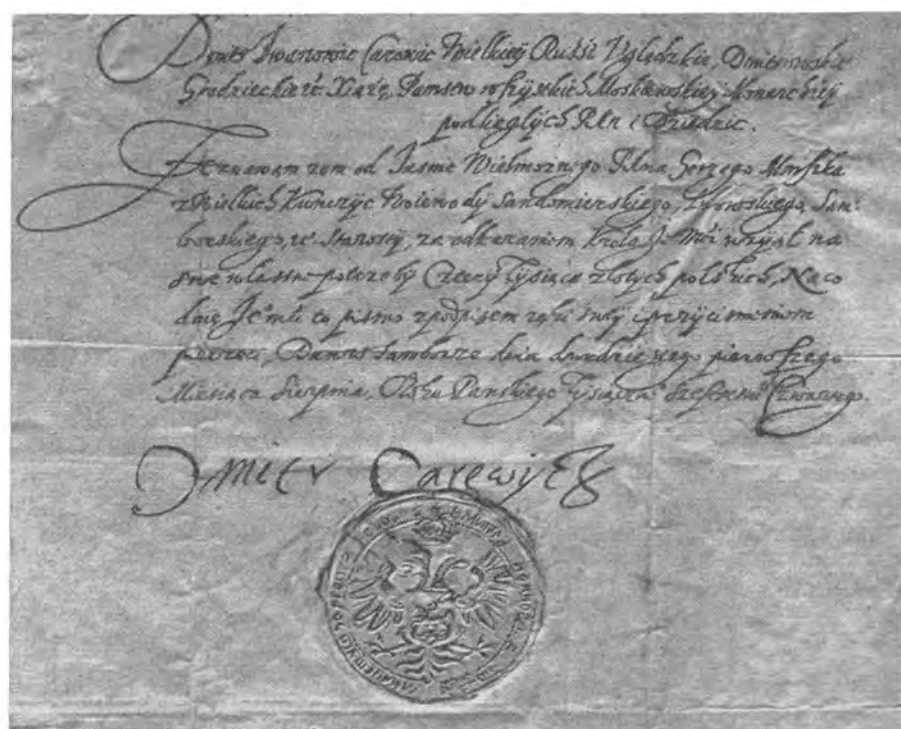 Dmitr Iwanowic Carowic Wielkiey Russi Uględzkie, Dmitrowskie
Grodzieckie etc Xiążę, Państw wszystkich Moskiewskiey Monarchiey
podlieglych Pan i Dziedzic.
Zeznawam żem od Jaśnie Wielmożnego Pana Gerzego Mniszka
z Wielkich Kunczyc Woiewody Sandomierskiego, Lwowskiego, Sam-
borskiego, etc Starosty, za Krola Je Mci wziął na
swe własne potrzeby Cztery Tysiąca złotych polskich, Na co
daię Je Mci to pismo z podpisem ręki swey i
pieczęci, Dan w Samborze dnia dwudziestego pierwszego
Miesiąca Sierpnia, Roku Panskiego Tysiącz Szescsetnego Czwartego.
Dmitr Carewicz